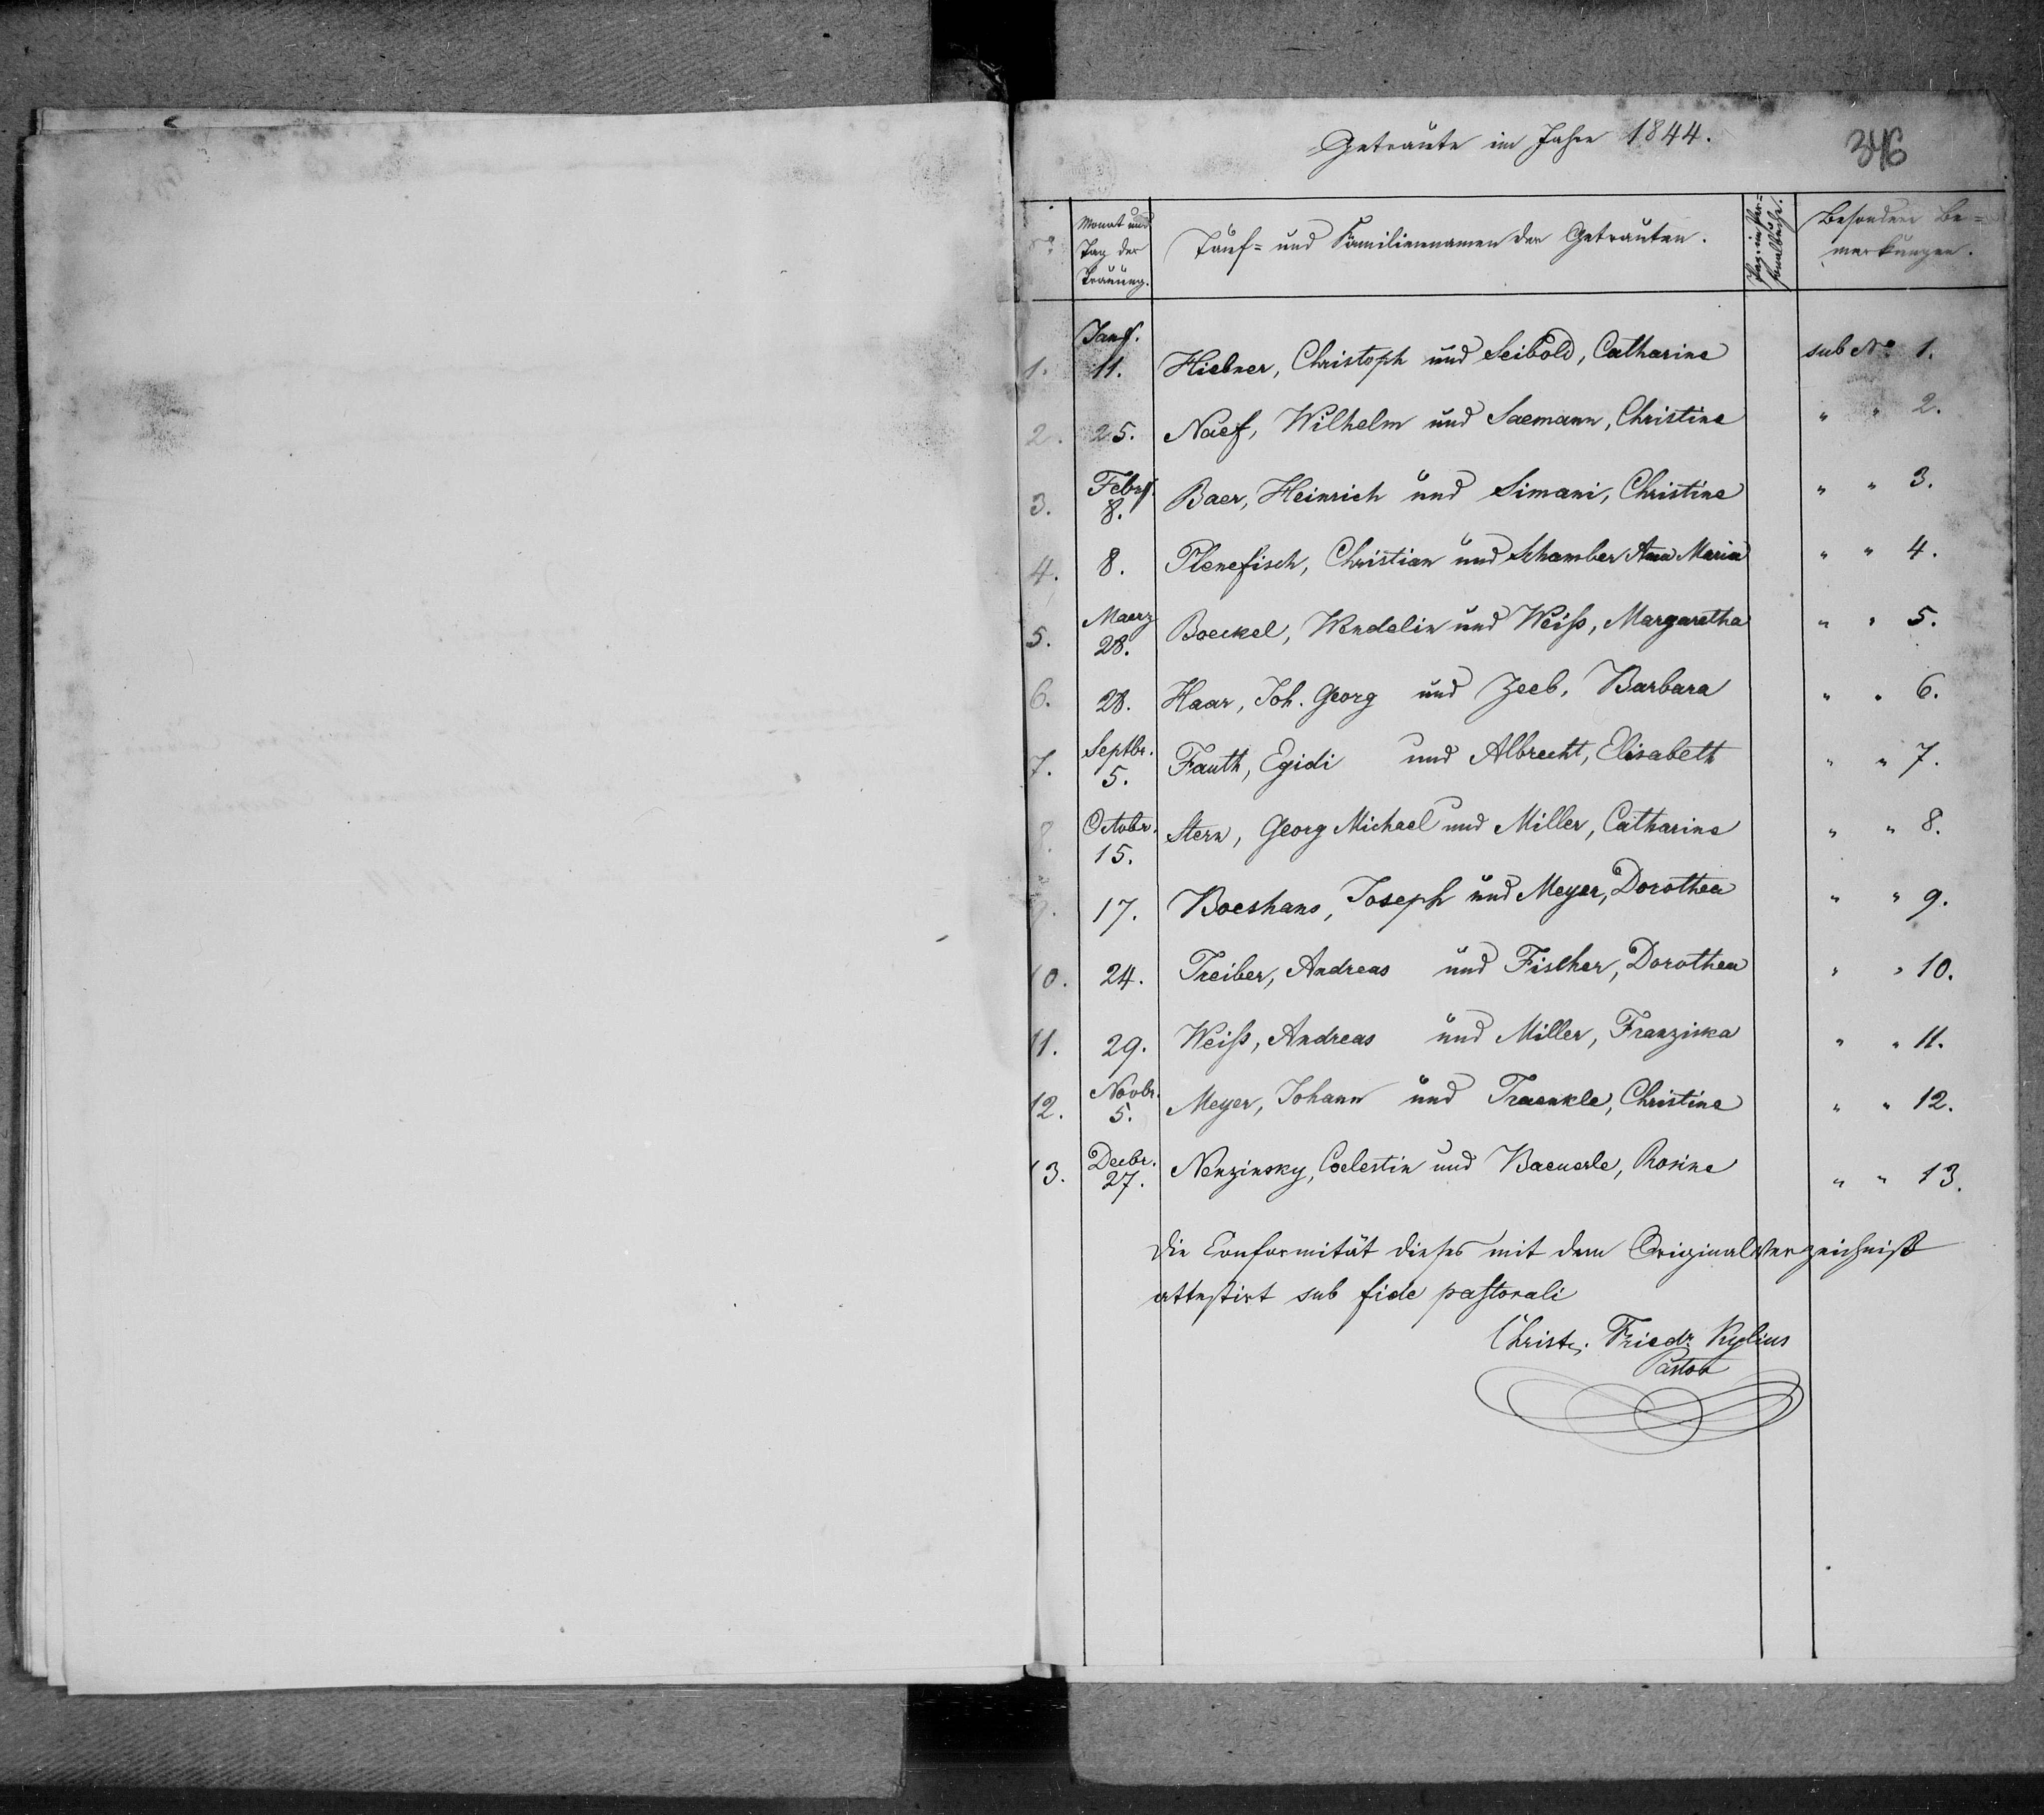 Getraute im Jahre 1844.
346
No
Monat und Tag der Trauung.
Tauf= und Familiennamen der Getrauten.
Pag. im Personalbuche.
Besondere Bemerkungen.
Janr.
1. 11. Hiebner, Christoph und Seibold, Catharine sub No 1.
2. 25. Naef, Wilhelm und Saemann, Christine " " 2.
Febr.
3. 8. Baer, Heinrich und Simani, Christine " " 3.
4. 8. Plenefisch, Christian und Schamber Anna Maria " " 4.
Maerz
5. 28. Boeckel, Wendelin und Weiß, Margaretha " " 5.
6. 28. Haar, Joh. Georg und Zeeb, Barbara " " 6.
Septbr.
7. 5. Fauth, Egidi und Albrecht, Elisabeth " " 7.
Octobr.
8. 15. Stern, Georg Michael und Miller, Catharine " " 8.
9. 17. Boeshans, Joseph und Meyer, Dorothea " " 9.
10. 24. Treiber, Andreas und Fischer, Dorothea " " 10.
11. 29. Weiß, Andreas und Miller, Franziska " " 11.
Novbr.
12. 5. Meyer, Johann und Traenkle, Christine " " 12.
Decbr.
13. 27. Nenzinsky, Coelestin und Baeuerle, Rosine " " 13.
Die Conformität dieses mit dem Originalverzeichniß
attestirt sub fide pastorali
Christ. Friedr. Kylius
Pastor